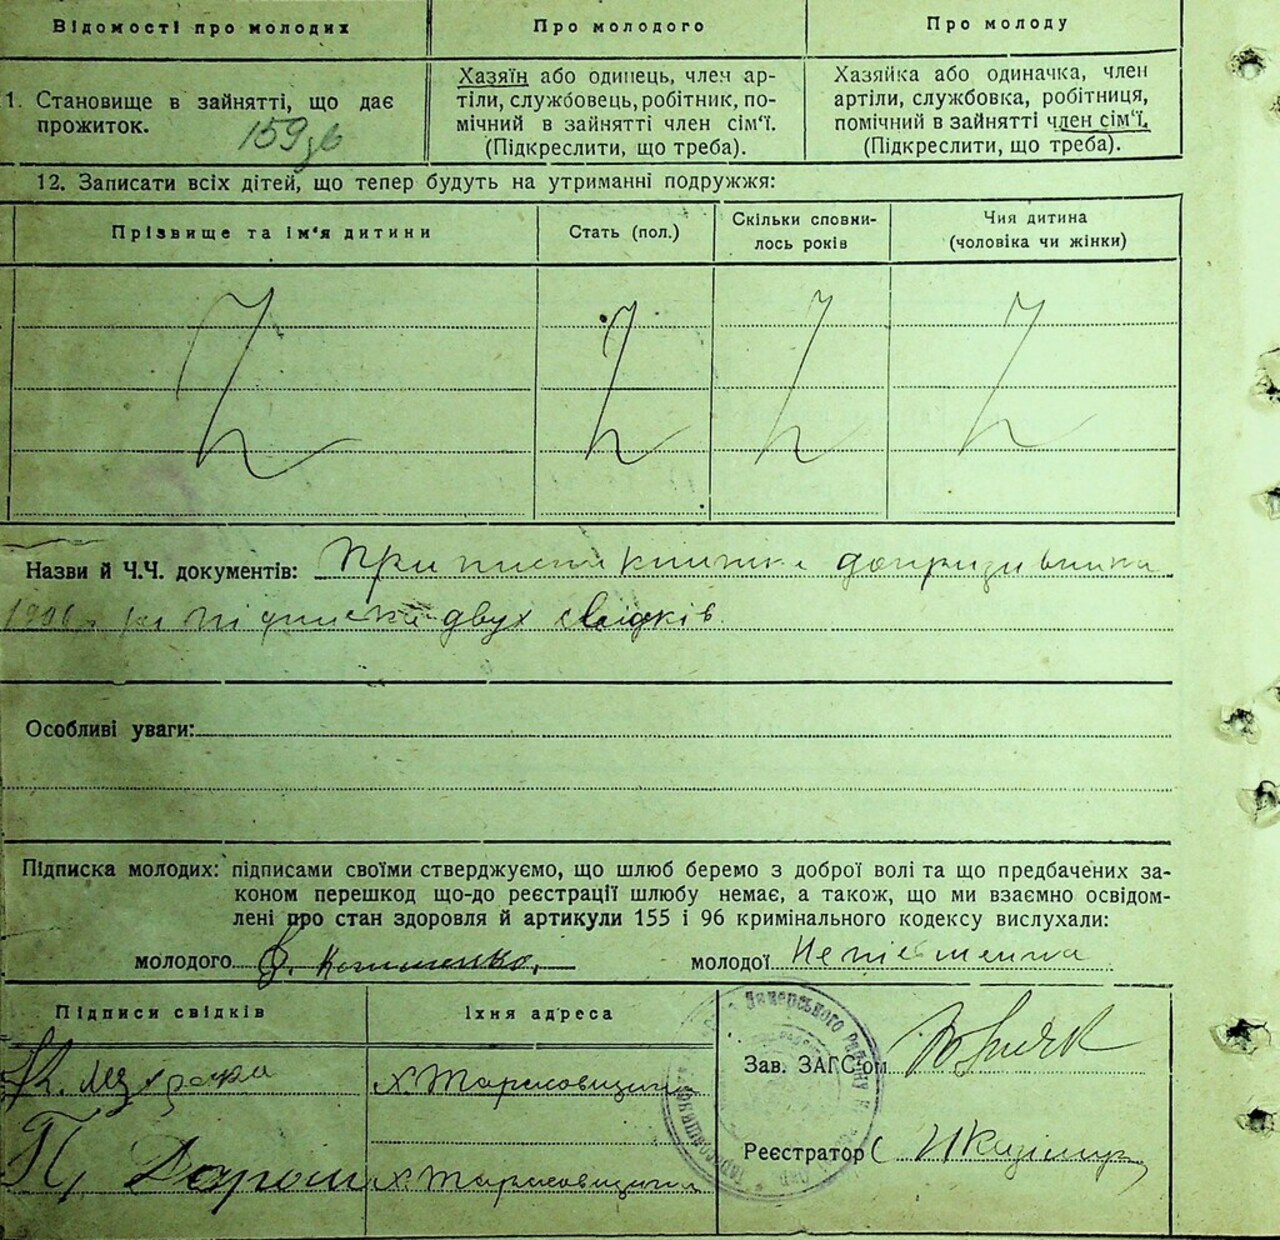 Відомості про молодих
Про молодого
Про молоду
1. Становище в зайнятті, що дає
прожиток.
159
Хазяїн або одинець, член ар-
тіли, службовець, робітник, по-
мічний в зайнятті член сім'ї.
(Підкреслити, що треба).
Хазяйка або одиначка, член
артіли, службовка, робітниця,
помічний в зайнятті член сім'ї.
(Підкреслити, що треба).
12. Записати всіх дітей, що тепер будуть на утриманні подружжя:
Прізвище та ім'я дитини
Стать (пол.)
Скільки сповни-
лось років
Чия дитина
(чоловіка чи жінки)
Назви й Ч.Ч. документів: Приписна книжка допризывника
1906 підписка двух свідків
Особливі уваги:
Підписка молодих: підписами своїми стверджуємо, що шлюб беремо з доброї волі та що предбачених за-
коном перешкод що-до реєстрації шлюбу немає, а також, що ми взаємно освідом-
лені про стан здоровля й артикули 155 і 96 кримінального кодексу вислухали:
молодого
молодої Неписьменна
Підписи свідків
Їхня адреса
Х. Тарасовщина
П.
Х. Тарасовщина
Зав. ЗАГС'ом
Реєстратор